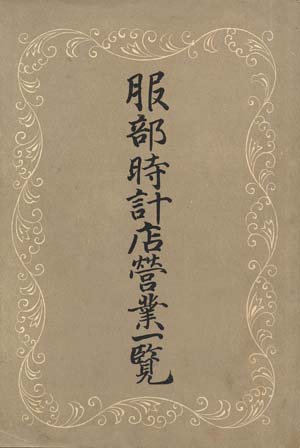 服部時計店營業一覽